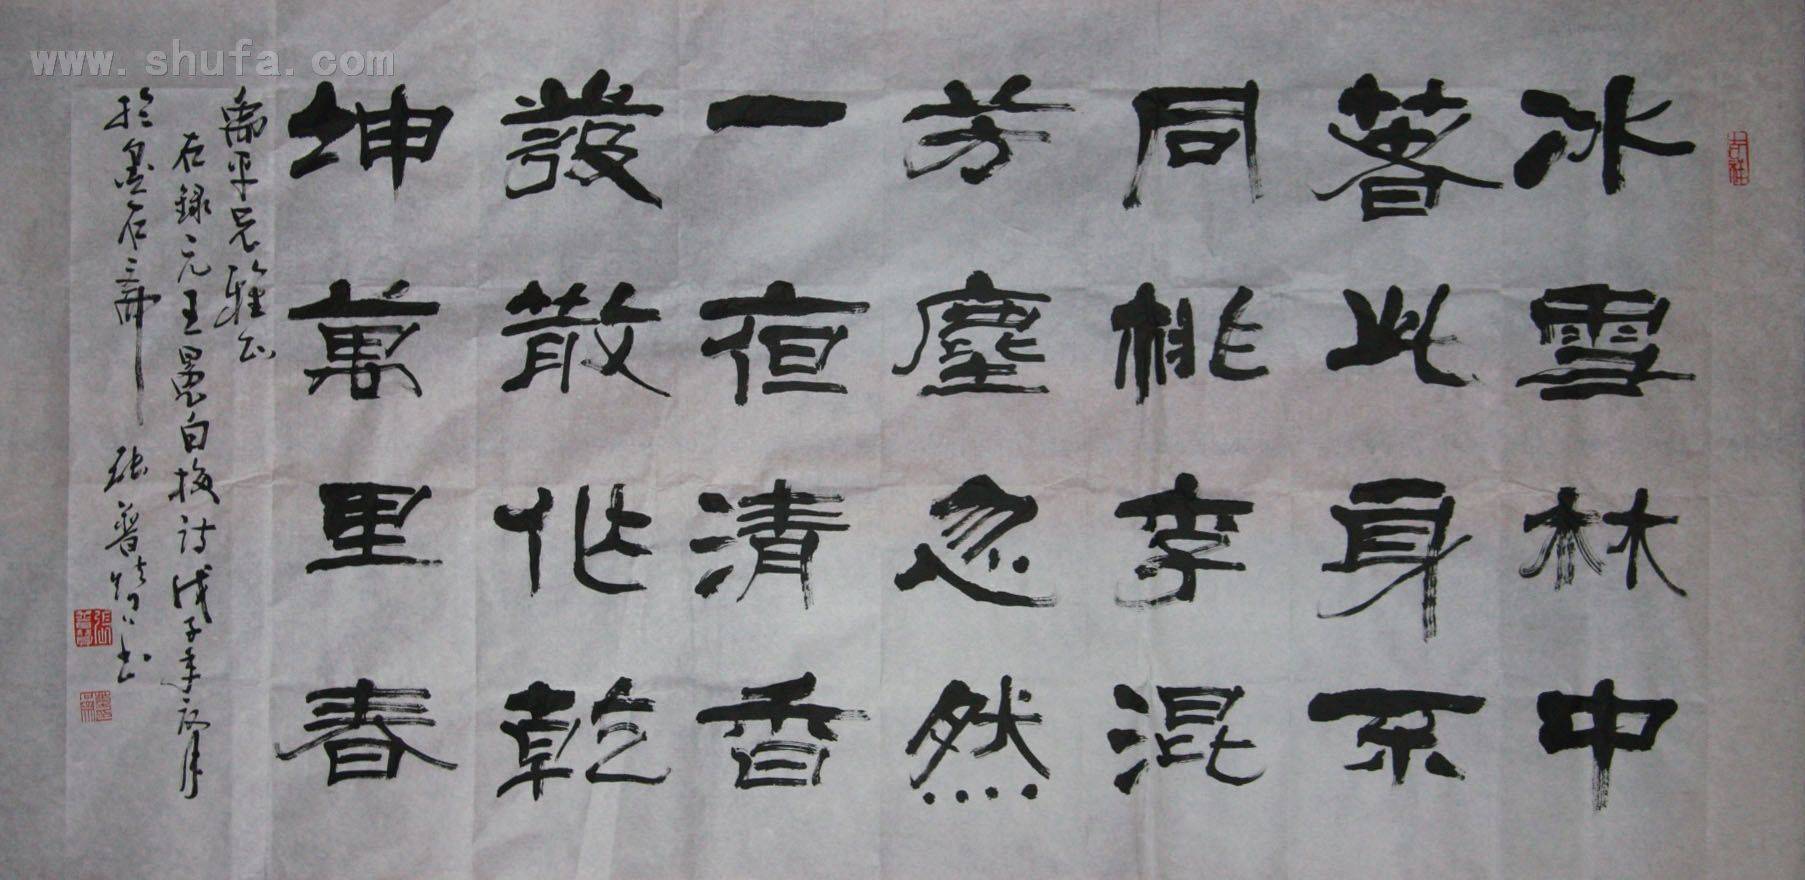 www.shufa.com
吉祥
冰雪林中
著此身不
同桃李混
芳塵忽然
一夜清香
發散作乾
坤萬里春
平兄雅正
右録元王冕白梅詩戊子年月
於墨石齋 張書